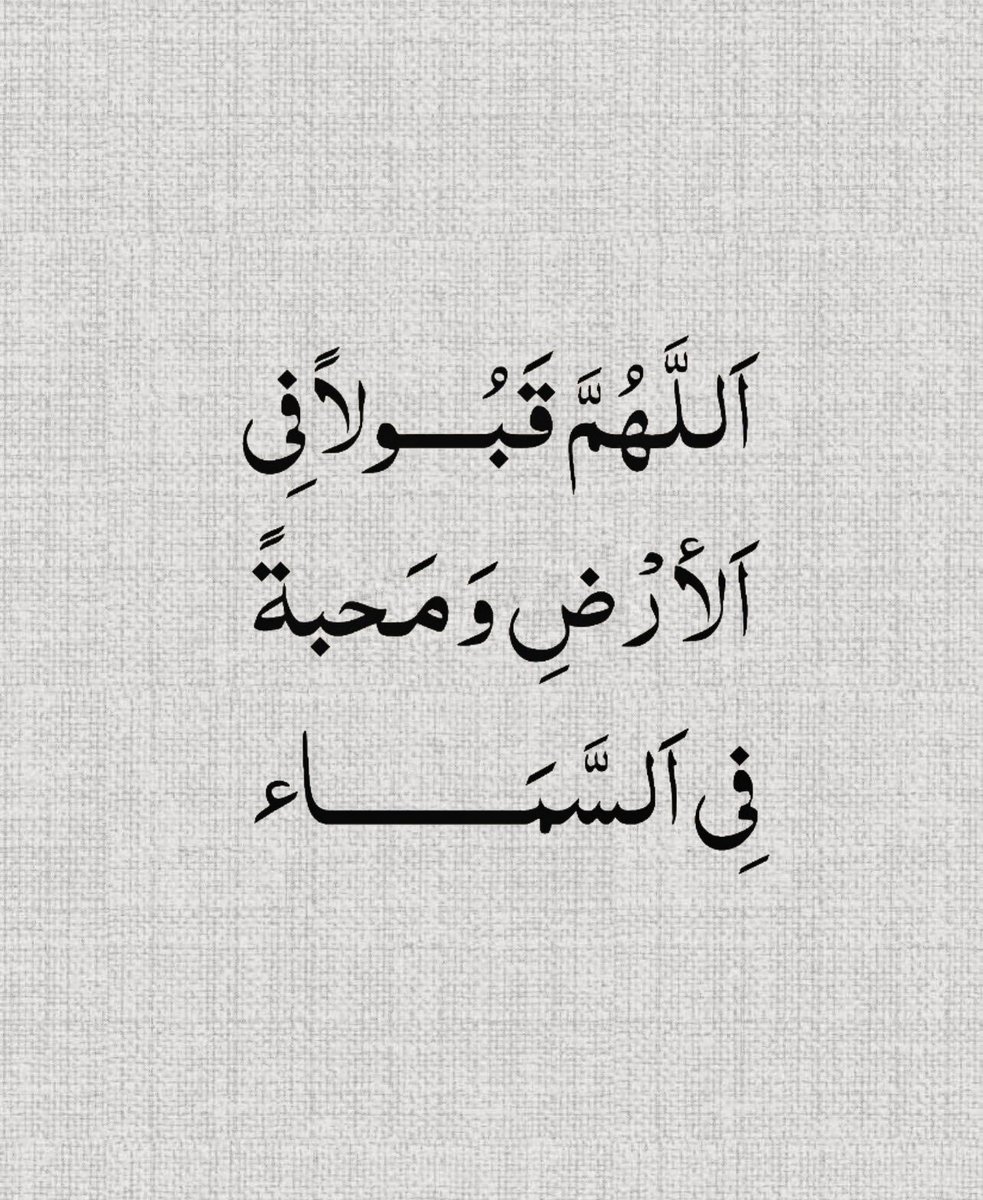 اَللَّهُمَّ قَبُـــولاً فِي
اَلأَرْضِ وَ مَحبةً
فِي اَلسَّمَـــــاء